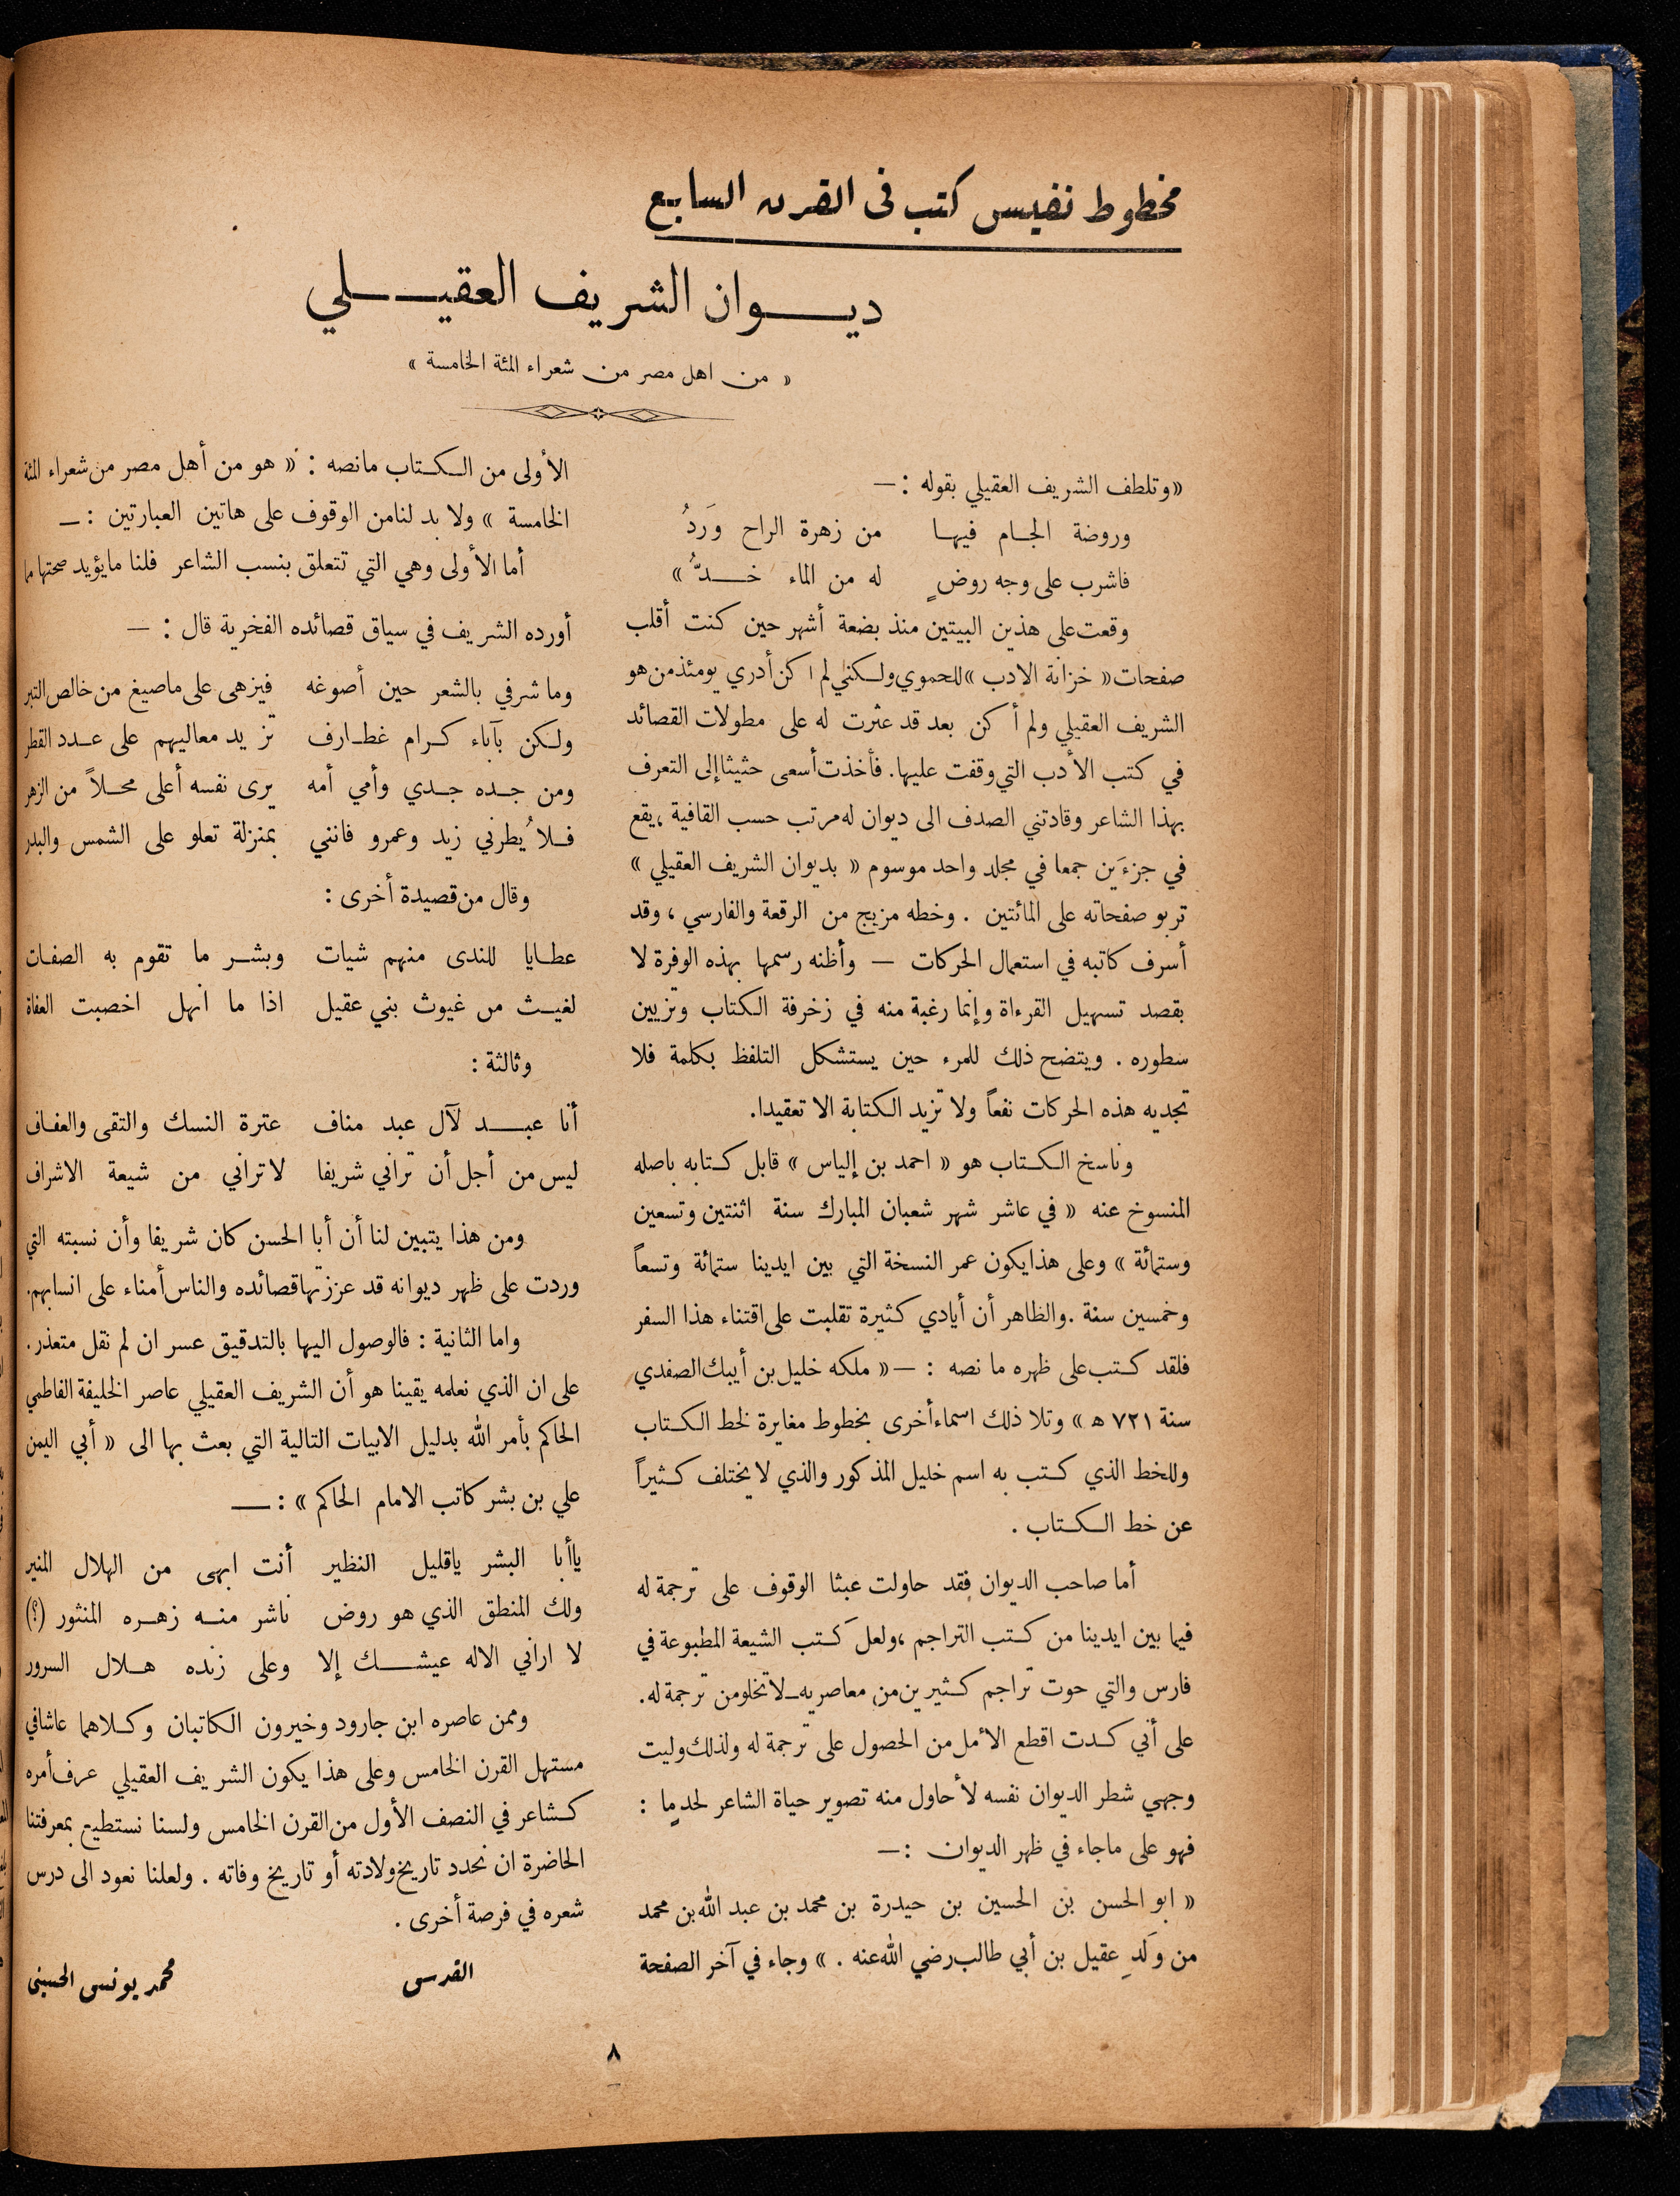 مخطوط نفيس كتب فى القرن السابع
ديوان الشريف العقيلي
« من اهل مصر من شعراء المئة الخامسة »
«وتلطف الشريف العقيلي بقوله :—
وروضة الجام فيها من زهرة الراح وَردُ
فاشرب على وجه روضٍ له من الماء خدُّ »
وقعت على هذين البيتين منذ بضعة أشهر حين كنت أقلب
صفحات « خزانة الادب » للحموي ولكني لم اكن أدري يومئذ من هو
الشريف العقيلي ولم أكن بعد قد عثرت له على مطولات القصائد
في كتب الأدب التي وقفت عليها. فأخذت أسعى حثيثا إلى التعرف
بهذا الشاعر وقادتني الصدف الى ديوان له مرتب حسب القافية ، يقع
في جزءَين جمعا في مجلد واحد موسوم « بديوان الشريف العقيلي »
تربو صفحاته على المائتين . وخطه مزيج من الرقعة والفارسي ، وقد
أسرف كاتبه في استعمال الحركات — وأظنه رسمها بهذه الوفرة لا
بقصد تسهيل القرءاة وإنما رغبة منه في زخرفة الكتاب وتزيين
سطوره . ويتضح ذلك للمرء حين يستشكل التلفظ بكلمة فلا
تجديه هذه الحركات نفعاً ولا تزيد الكتابة الا تعقيدا.
وناسخ الكتاب هو « احمد بن إلياس » قابل كتابه باصله
المنسوخ عنه « في عاشر شهر شعبان المبارك سنة اثنتين وتسعين
وستمائة » وعلى هذا يكون عمر النسخة التي بين ايدينا ستمائة وتسعاً
وخمسين سنة . والظاهر أن أيادي كثيرة تقلبت على اقتناء هذا السفر
فلقد كتب على ظهره ما نصه : — « ملكه خليل بن أيبك الصفدي
سنة ٧٢١ ه » وتلا ذلك اسماء أخرى بخطوط مغايرة لخط الكتاب
وللخط الذي كتب به اسم خليل المذكور والذي لا يختلف كثيراً
عن خط الكتاب .
أما صاحب الديوان فقد حاولت عبثا الوقوف على ترجمة له
فيما بين ايدينا من كتب التراجم ، ولعل كتب الشيعة المطبوعة في
فارس والتي حوت تراجم كثيرين من معاصريه ـ لا تخلو من ترجمة له.
على أني كدت اقطع الأمل من الحصول على ترجمة له ولذلك وليت
وجهي شطر الديوان نفسه لأحاول منه تصوير حياة الشاعر لحدٍما :
فهو على ماجاء في ظهر الديوان :—
« ابو الحسن بن الحسين بن حيدرة بن محمد بن عبد الله بن محمد
من وَلدِ عقيل بن أبي طالب رضي الله عنه . » وجاء في آخر الصفحة
الأولى من الكتاب مانصه : « هو من أهل مصر من شعراء المئة
الخامسة » ولا بد لنا من الوقوف على هاتين العبارتين :—
أما الأولى وهي التي تتعلق بنسب الشاعر فلنا مايؤيد صحتها مما
أورده الشريف في سياق قصائده الفخرية قال :—
وما شرفي بالشعر حين أصوغه فيزهى على ماصيغ من خالص التبر
ولكن بآباء كرام غطارف تزيد معاليهم على عدد القطر
ومن جده جدي وأمي أمه يرى نفسه أعلى محلاً من الزهر
فلا يُطرني زيد وعمرو فانني بمنزلة تعلو على الشمس والبدر
وقال من قصيدة أخرى :
عطايا للندى منهم شيات وبشر ما تقوم به الصفات
لغيث من غيوث بني عقيل اذا ما انهل اخصبت العفاة
وثالثة :
أنا عبد لآل عبد مناف عترة النسك والتقى والعفاف
ليس من أجل أن تراني شريفا لا تراني من شيعة الاشراف
ومن هذا يتبين لنا أن أبا الحسن كان شريفا وأن نسبته التي
وردت على ظهر ديوانه قد عززتها قصائده والناس أمناء على انسابهم.
واما الثانية : فالوصول اليها بالتدقيق عسر ان لم نقل متعذر.
على ان الذي نعلمه يقينا هو أن الشريف العقيلي عاصر الخليفة الفاطمي
الحاكم بأمر الله بدليل الابيات التالية التي بعث بها الى « أبي اليمن
علي بن بشر كاتب الامام الحاكم » :—
ياأبا البشر ياقليل النظير أنت ابهى من الهلال المنير
ولك المنطق الذي هو روض ناشر منه زهره المنثور (؟)
لا اراني الاله عيشك إلا وعلى زنده هلال السرور
وممن عاصره ابن جارود وخيرون الكاتبان وكلاهما عاشافي
مستهل القرن الخامس وعلى هذا يكون الشريف العقيلي عرف أمره
كشاعر في النصف الأول من القرن الخامس ولسنا نستطيع بمعرفتنا
الحاضرة ان نحدد تاريخ ولادته أو تاريخ وفاته . ولعلنا نعود الى درس
شعره في فرصة أخرى .
القدس محمد يونس الحسينى
٨